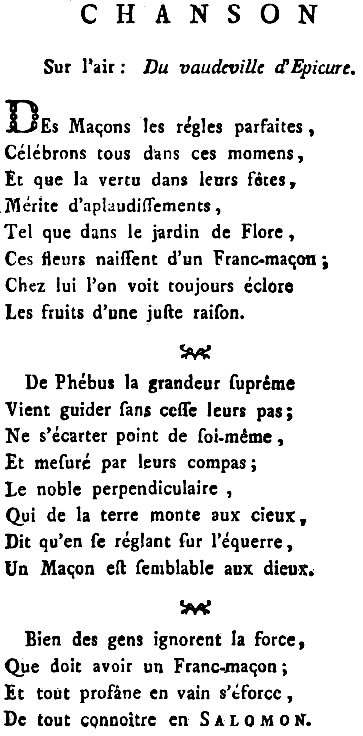 CHANSON
Sur l'air : Du vaudeville d'Epicure.
DEs Maçons les régles parfaites,
Célébrons tous dans ces momens,
Et que la vertu dans leurs fêtes,
Mérite d'aplaudiſſements,
Tel que dans le jardin de Flore,
Ces fleurs naiſſent d'un Franc-maçon;
Chez lui l'on voit toujours éclore
Les fruits d'une juſte raiſon.
De Phébus la grandeur ſuprême
Vient guider ſans ceſſe leurs pas;
Ne s'écarter point de ſoi-même,
Et meſuré par leurs compas;
Le noble perpendiculaire,
Qui de la terre monte aux cieux,
Dit qu'en ſe réglant ſur l'équerre,
Un Maçon eſt ſemblable aux dieux.
Bien des gens ignorent la force,
Que doit avoir un Franc-maçon;
Et tout profâne en vain s'éforce,
De tout connoître en SALOMON.